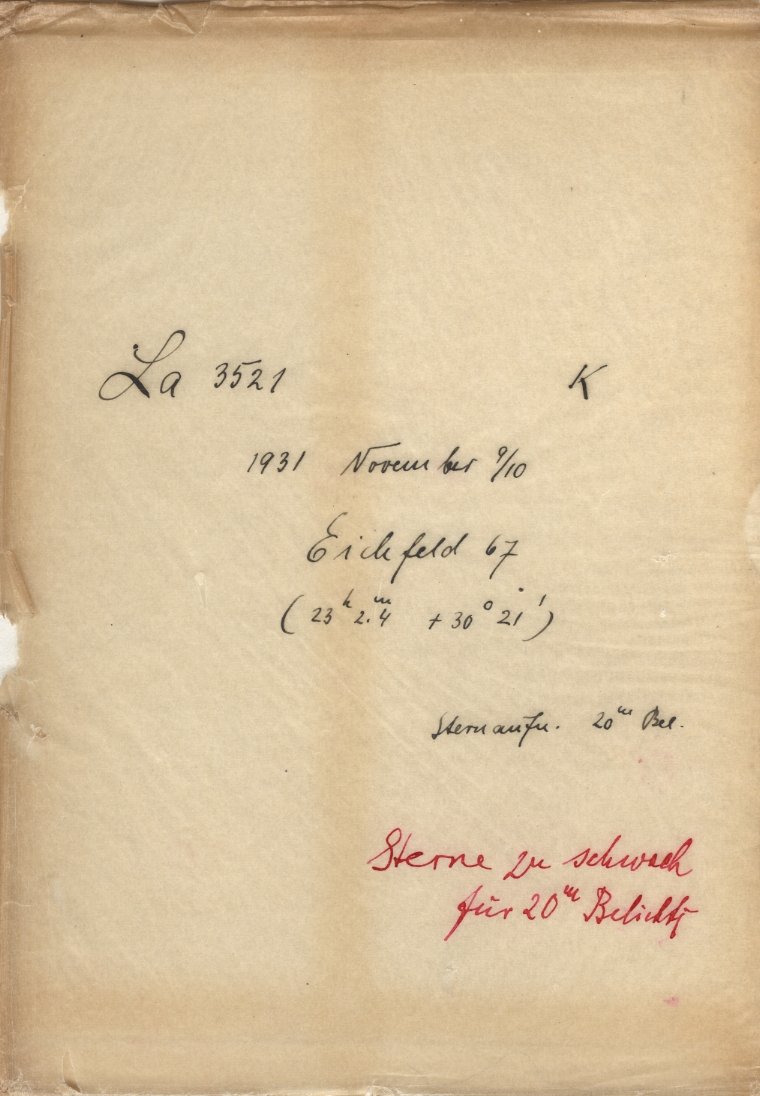 La 3521 K
1931 November 9/10
Eichfeld 67
(23ʰ 2.ᵐ4 + 30° 21')
Sternaufn. 20ᵐ Bel.
Sterne zu schwach
für 20ᵐ Belichtg